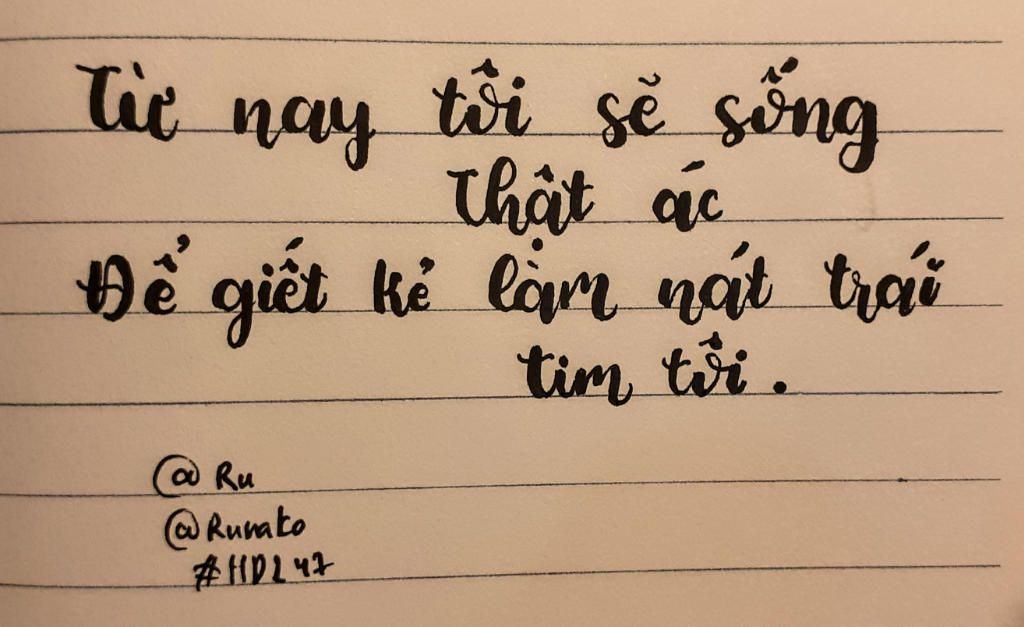 Từ nay tôi sẽ sống
thật ác
Để giết kẻ làm nát trái
tim tôi.
@ Ru
@Runato
#HDL47